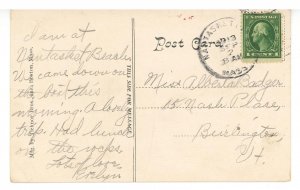 I am at
Nantasket Beach
We came down on
the boat this
morning. A lovely
trip. Had lunch
on the rocks
Lots of love
THIS SIDE FOR MESSAGE
Post Card
NANTASKET
MASS
Miss Alberta Badger
15 Nash Place,
Burlington
Vt.